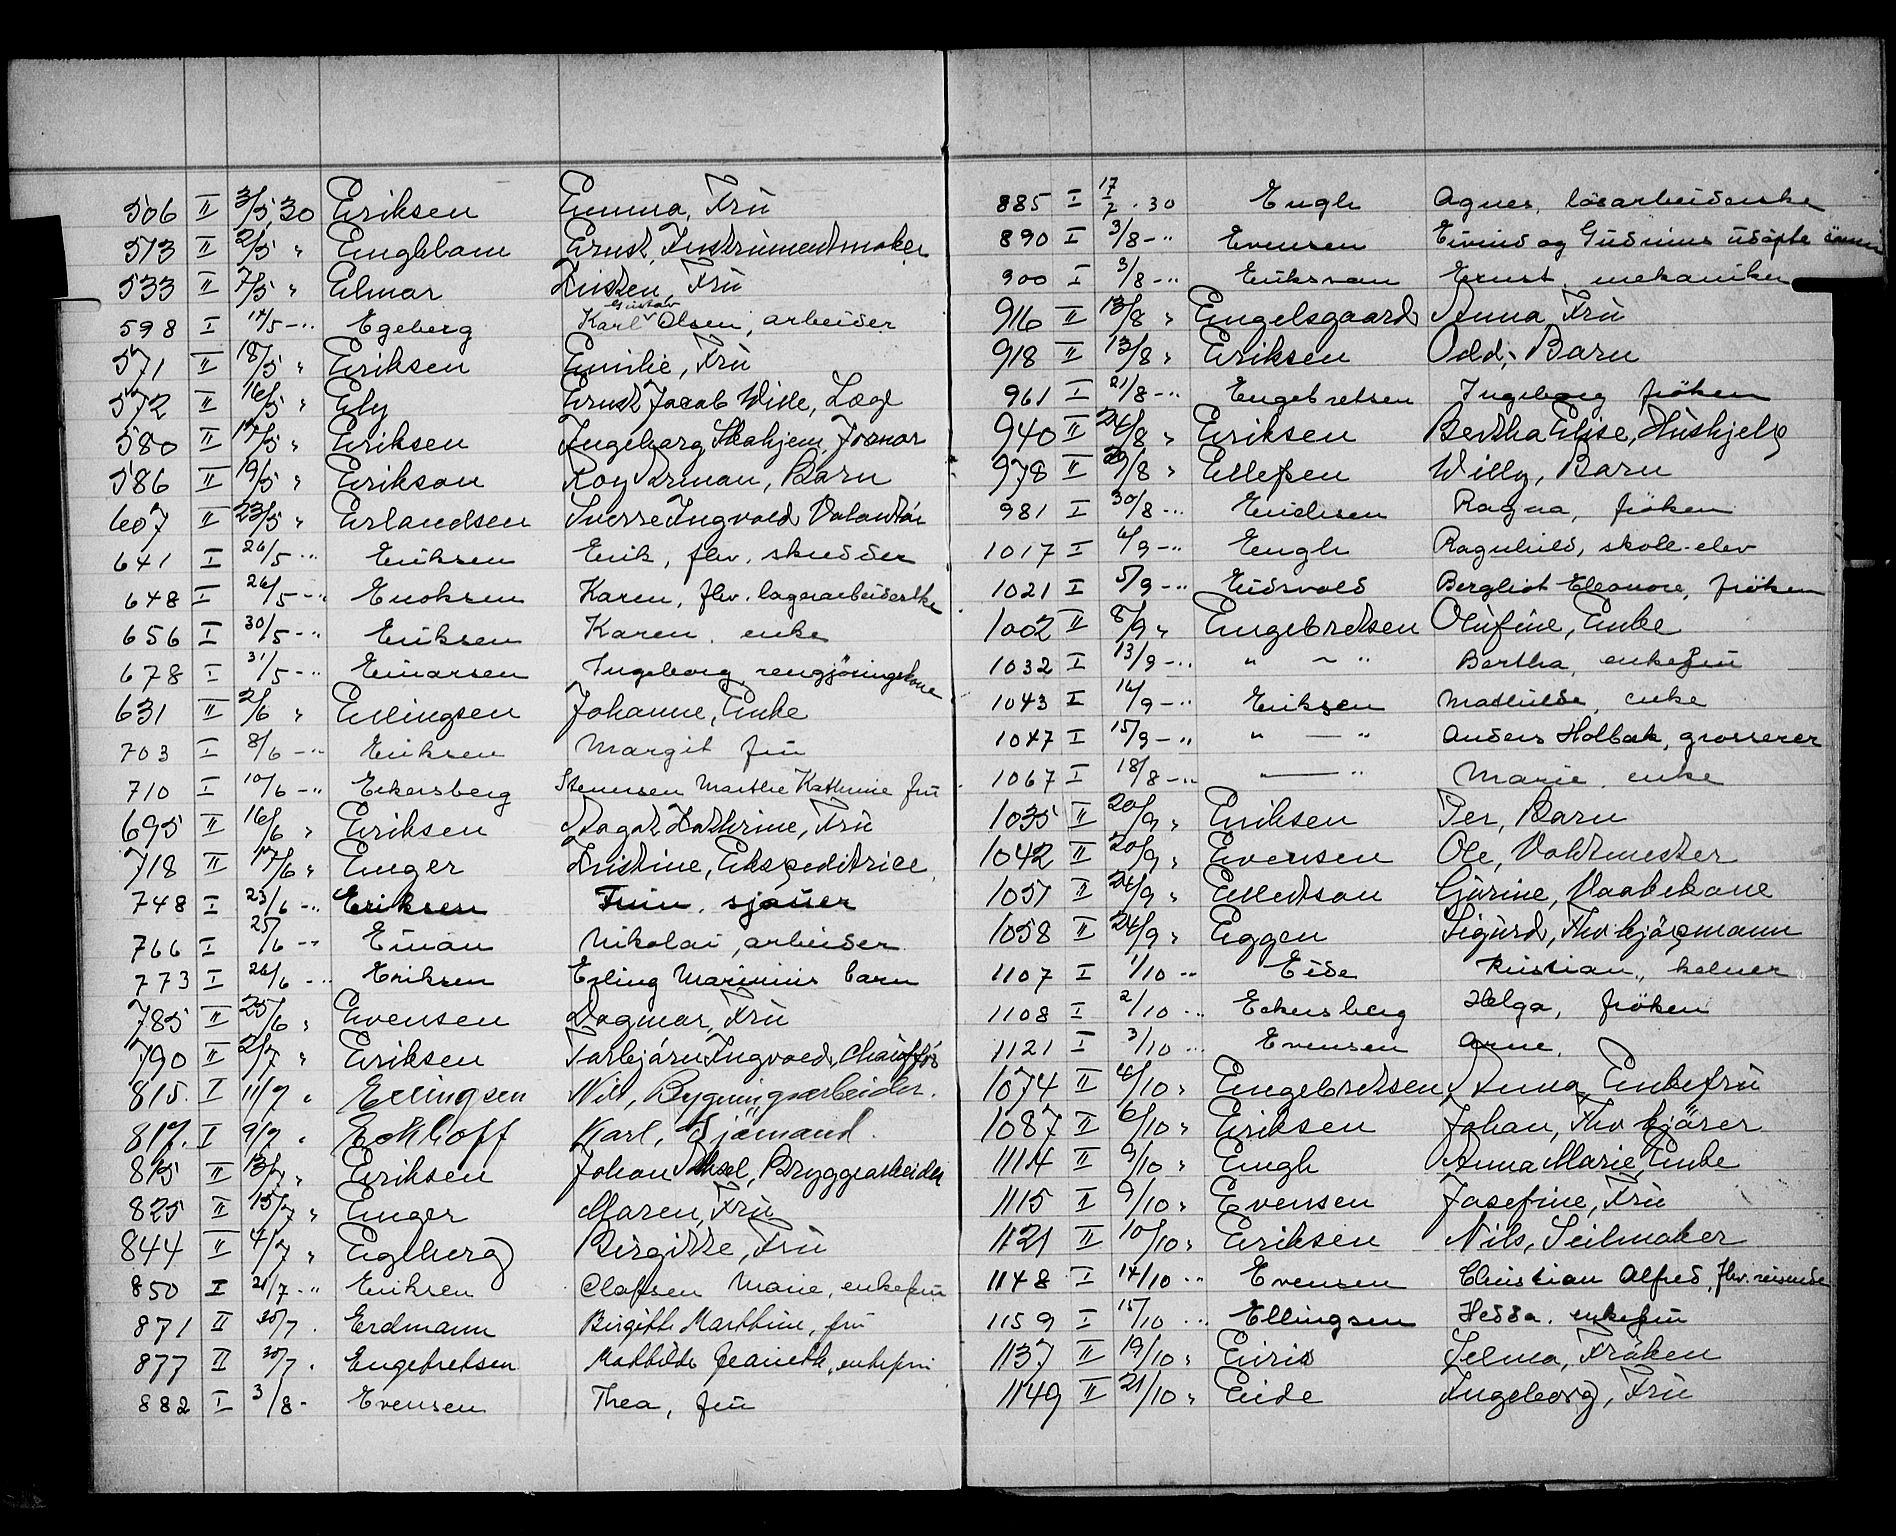 506 II 3/5 30 Eriksen Emma, Fru
513 II 2/5 " Engblom Ernst, Instrumentmaker
533 II 7/5 " Elmar Kristen, Fru
598 I 14/5 -" Egeberg Karl Gustav Olsen, arbeider
571 II 18/5 " Eriksen Emilie, Fru
572 II 16/5 " Ely Ernst Jacob Wille, Læge
580 II 17/5 " Eriksen Ingeborg Skahjem, Jormor
586 II 19/5 " Erikson Roy Norman, Barn
607 II 23/5 " Erlandsen Sverre Ingvald, Volontør
641 I 26/5 -" Eriksen Erik, fhv. skredder
648 I 26/5 -" Enoksen Karen, fhv. lagerarbeiderske
656 I 30/5 -" Eriksen Karen, enke
678 I 31/5 -" Einarsen Ingeborg, rengjøringskone
631 II 2/6 " Ellingsen Johanne, Enke
703 I 8/6 -" Eriksen Margit fru
710 I 10/6 -" Eckersberg Stenersen Marthe Kathrine fru
695 II 16/6 " Eriksen Magot Kathrine, Fru
718 II 17/6 " Enger Kristine, Ekspeditrice
748 I 23/6 -" Eriksen Finn, sjauer
766 I 25/6 -" Einan Nikolai, arbeider
773 I 26/6 -" Eriksen Erling Marinius barn
785 II 25/6 " Evensen Dagmar, Fru
790 II 2/7 " Eriksen Torbjørn Ingvald, Chauffør
815. I 11/7 " Ellingsen Nils, Bygningsarbeider.
817. I 9/7 " Eckhoff Karl, Sjømand.
815 II 13/7 " Eriksen Johan Aksel, Bryggearbeider
825 II 15/7 " Enger Maren, Fru
844 II 4/7 " Egeberg Birgitte, Fru
850 I 21/7 -" Eriksen Olafsen Marie, enkefru
871 II 30/7 . Erdmann Birgitte Marthine, fru
877 II 30/7 . Engebretsen Mathilde Jeanette, enkefru
882 I 3/8 - Evensen Thea, fru
885 I 17/7 . 30 Engh Agnes, løsarbeiderske
890 I 3/8 -" Evensen Eivind og Gudruns udøpte
900 I 3/8 -" Eriksson Ernst, mekaniker
916 II 13/8 " Engelsgaard Anna, Fru
918 II 13/8 " Eriksen Odd, Barn
961 I 21/8 -" Engebretsen Ingeborg frøken
940 II 24/8 " Eriksen Bertha Elise, Hushjelp
978 II 29/8 " Ellefsen Willy, Barn
981 I 30/8 -" Endresen Ragna, frøken
1017 I 6/9 -" Engh Ragnhild, skole-elev
1021 I 5/9 -" Eidsvold Bergliot Eleonore, frøken
1002 II 8/9 " Engebretsen Olufine, Enke
1032 I 13/9 -" " - " Bertha, enkefru
1043 I 16/9 -" Eriksen Mathilde, enke
1047 I 15/9 -" " - " Anders Holbæk, grosserer
1067 I 18/8 -" " - " Marie, enke
1035 II 20/9 " Eriksen Per, Barn
1042 II 20/9 " Evensen Ole, Vaktmester
1051 II 24/9 " Ellertson Gjurine, Vaskekone
1058 II 24/9 " Eggen Sigurd, Fhv kjøpmann
1107 I 1/10 -" Eide Kristian, kelner
1108 I 2/10 -" Eckersberg Helga, frøken
1121 I 3/10 -" Evensen Arne,
1074 II 4/10 " Engebretsen, Anna, Enkefru
1087 II 6/10 " Eriksen Johan, Fhv kjører
1114 II 9/10 " Engh Anna Marie, Enke
1115 II 9/10 " Evensen Josefine, Fru
1121 II 10/10 " Eriksen Nils, Seilmaker
1148 I 14/10 -" Evensen Christian Alfred, fhv. reisende
1159 I 15/10 -" Ellingsen Hedda, enkefru
1137 II 19/10 " Selma, Frøken
1149 II 21/10 " Eide Ingeborg, Fru